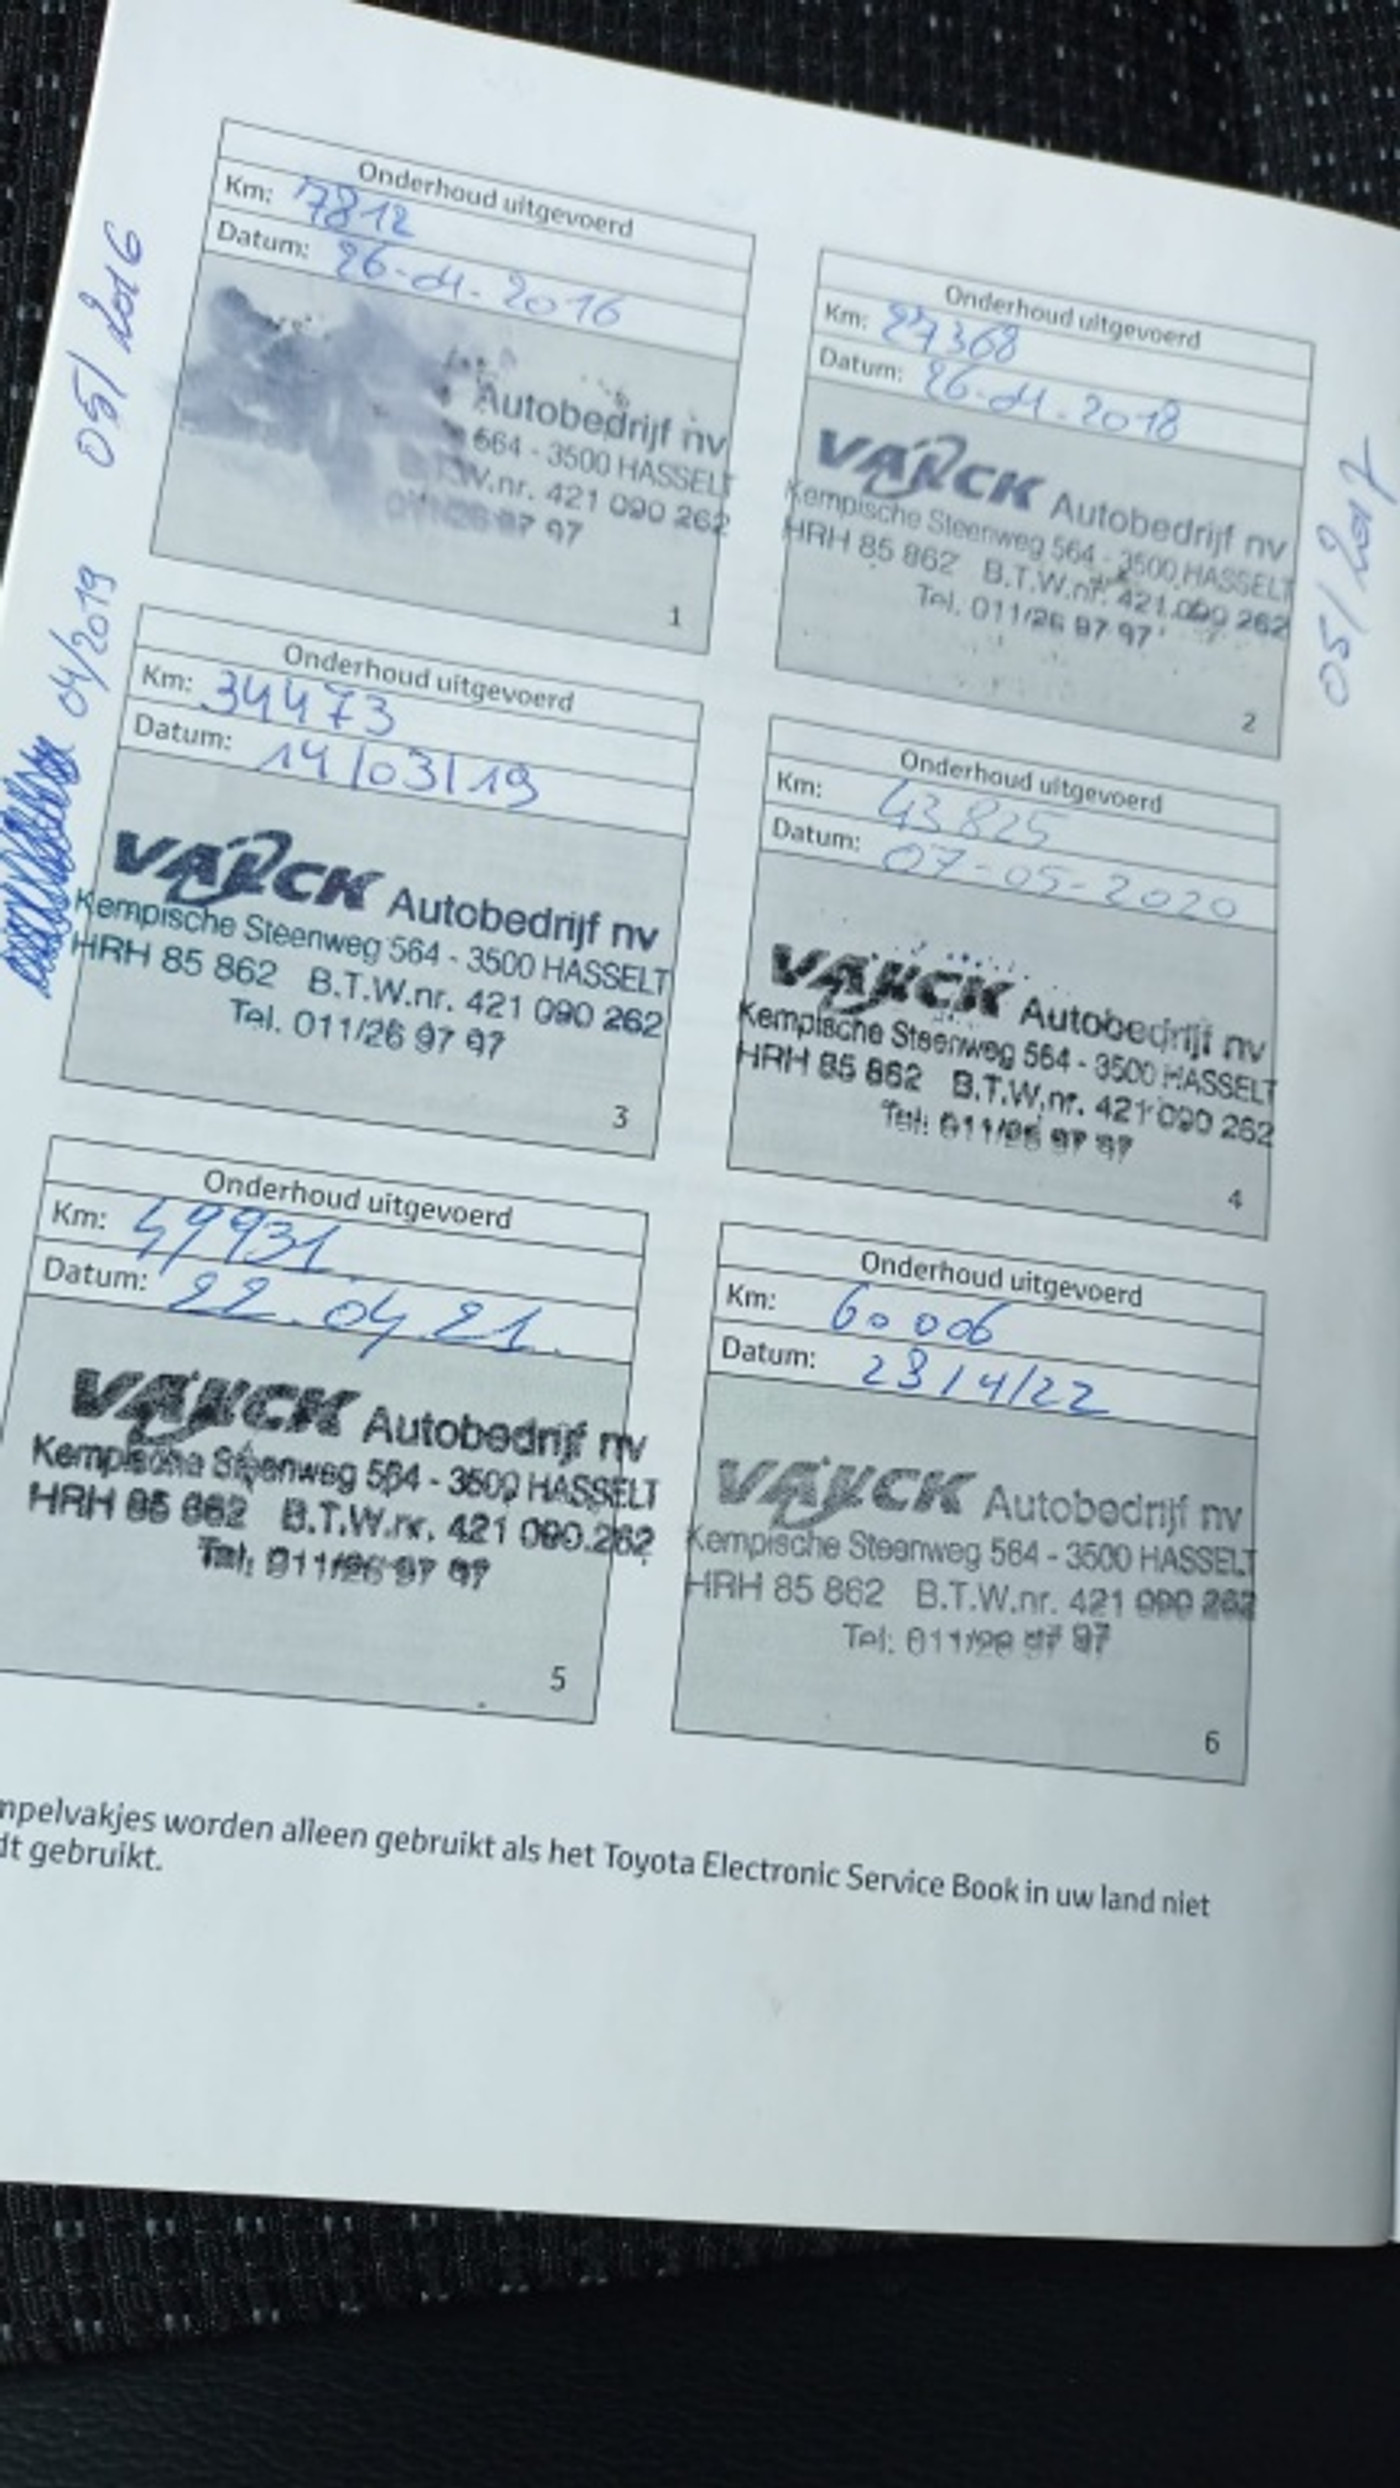 05/2016
Onderhoud uitgevoerd
Km: 7812
Datum: 26-01-2016
Autobedrijf nv
564 - 3500 HASSELT
B.T.W.nr. 421 090 262
011/26 97 97
1
Onderhoud uitgevoerd
Km: 27368
Datum: 26-01-2018
VARCK Autobedrijf nv
Kempische Steenweg 564 - 3500 HASSELT
HRH 85 862 B.T.W.nr. 421 090 262
Tel. 011/26 97 97
2
05/2017
04/2019
Onderhoud uitgevoerd
Km: 34473
Datum: 14/03/19
VARCK Autobedrijf nv
Kempische Steenweg 564 - 3500 HASSELT
HRH 85 862 B.T.W.nr. 421 090 262
Tel. 011/26 97 97
3
Onderhoud uitgevoerd
Km: 43825
Datum: 07-05-2020
VARCK Autobedrijf nv
Kempische Steenweg 564 - 3500 HASSELT
HRH 85 862 B.T.W.nr. 421 090 262
Tel: 011/26 97 97
4
Onderhoud uitgevoerd
Km: 49931
Datum: 22.04.21.
VARCK Autobedrijf nv
Kempische Steenweg 564 - 3500 HASSELT
HRH 85 862 B.T.W.nr. 421 090.262
Tel: 011/26 97 97
5
Onderhoud uitgevoerd
Km: 60006
Datum: 28/4/22
VARCK Autobedrijf nv
Kempische Steenweg 564 - 3500 HASSELT
HRH 85 862 B.T.W.nr. 421 090 262
Tel: 011/26 97 97
6
mpelvakjes worden alleen gebruikt als het Toyota Electronic Service Book in uw land niet
dt gebruikt.